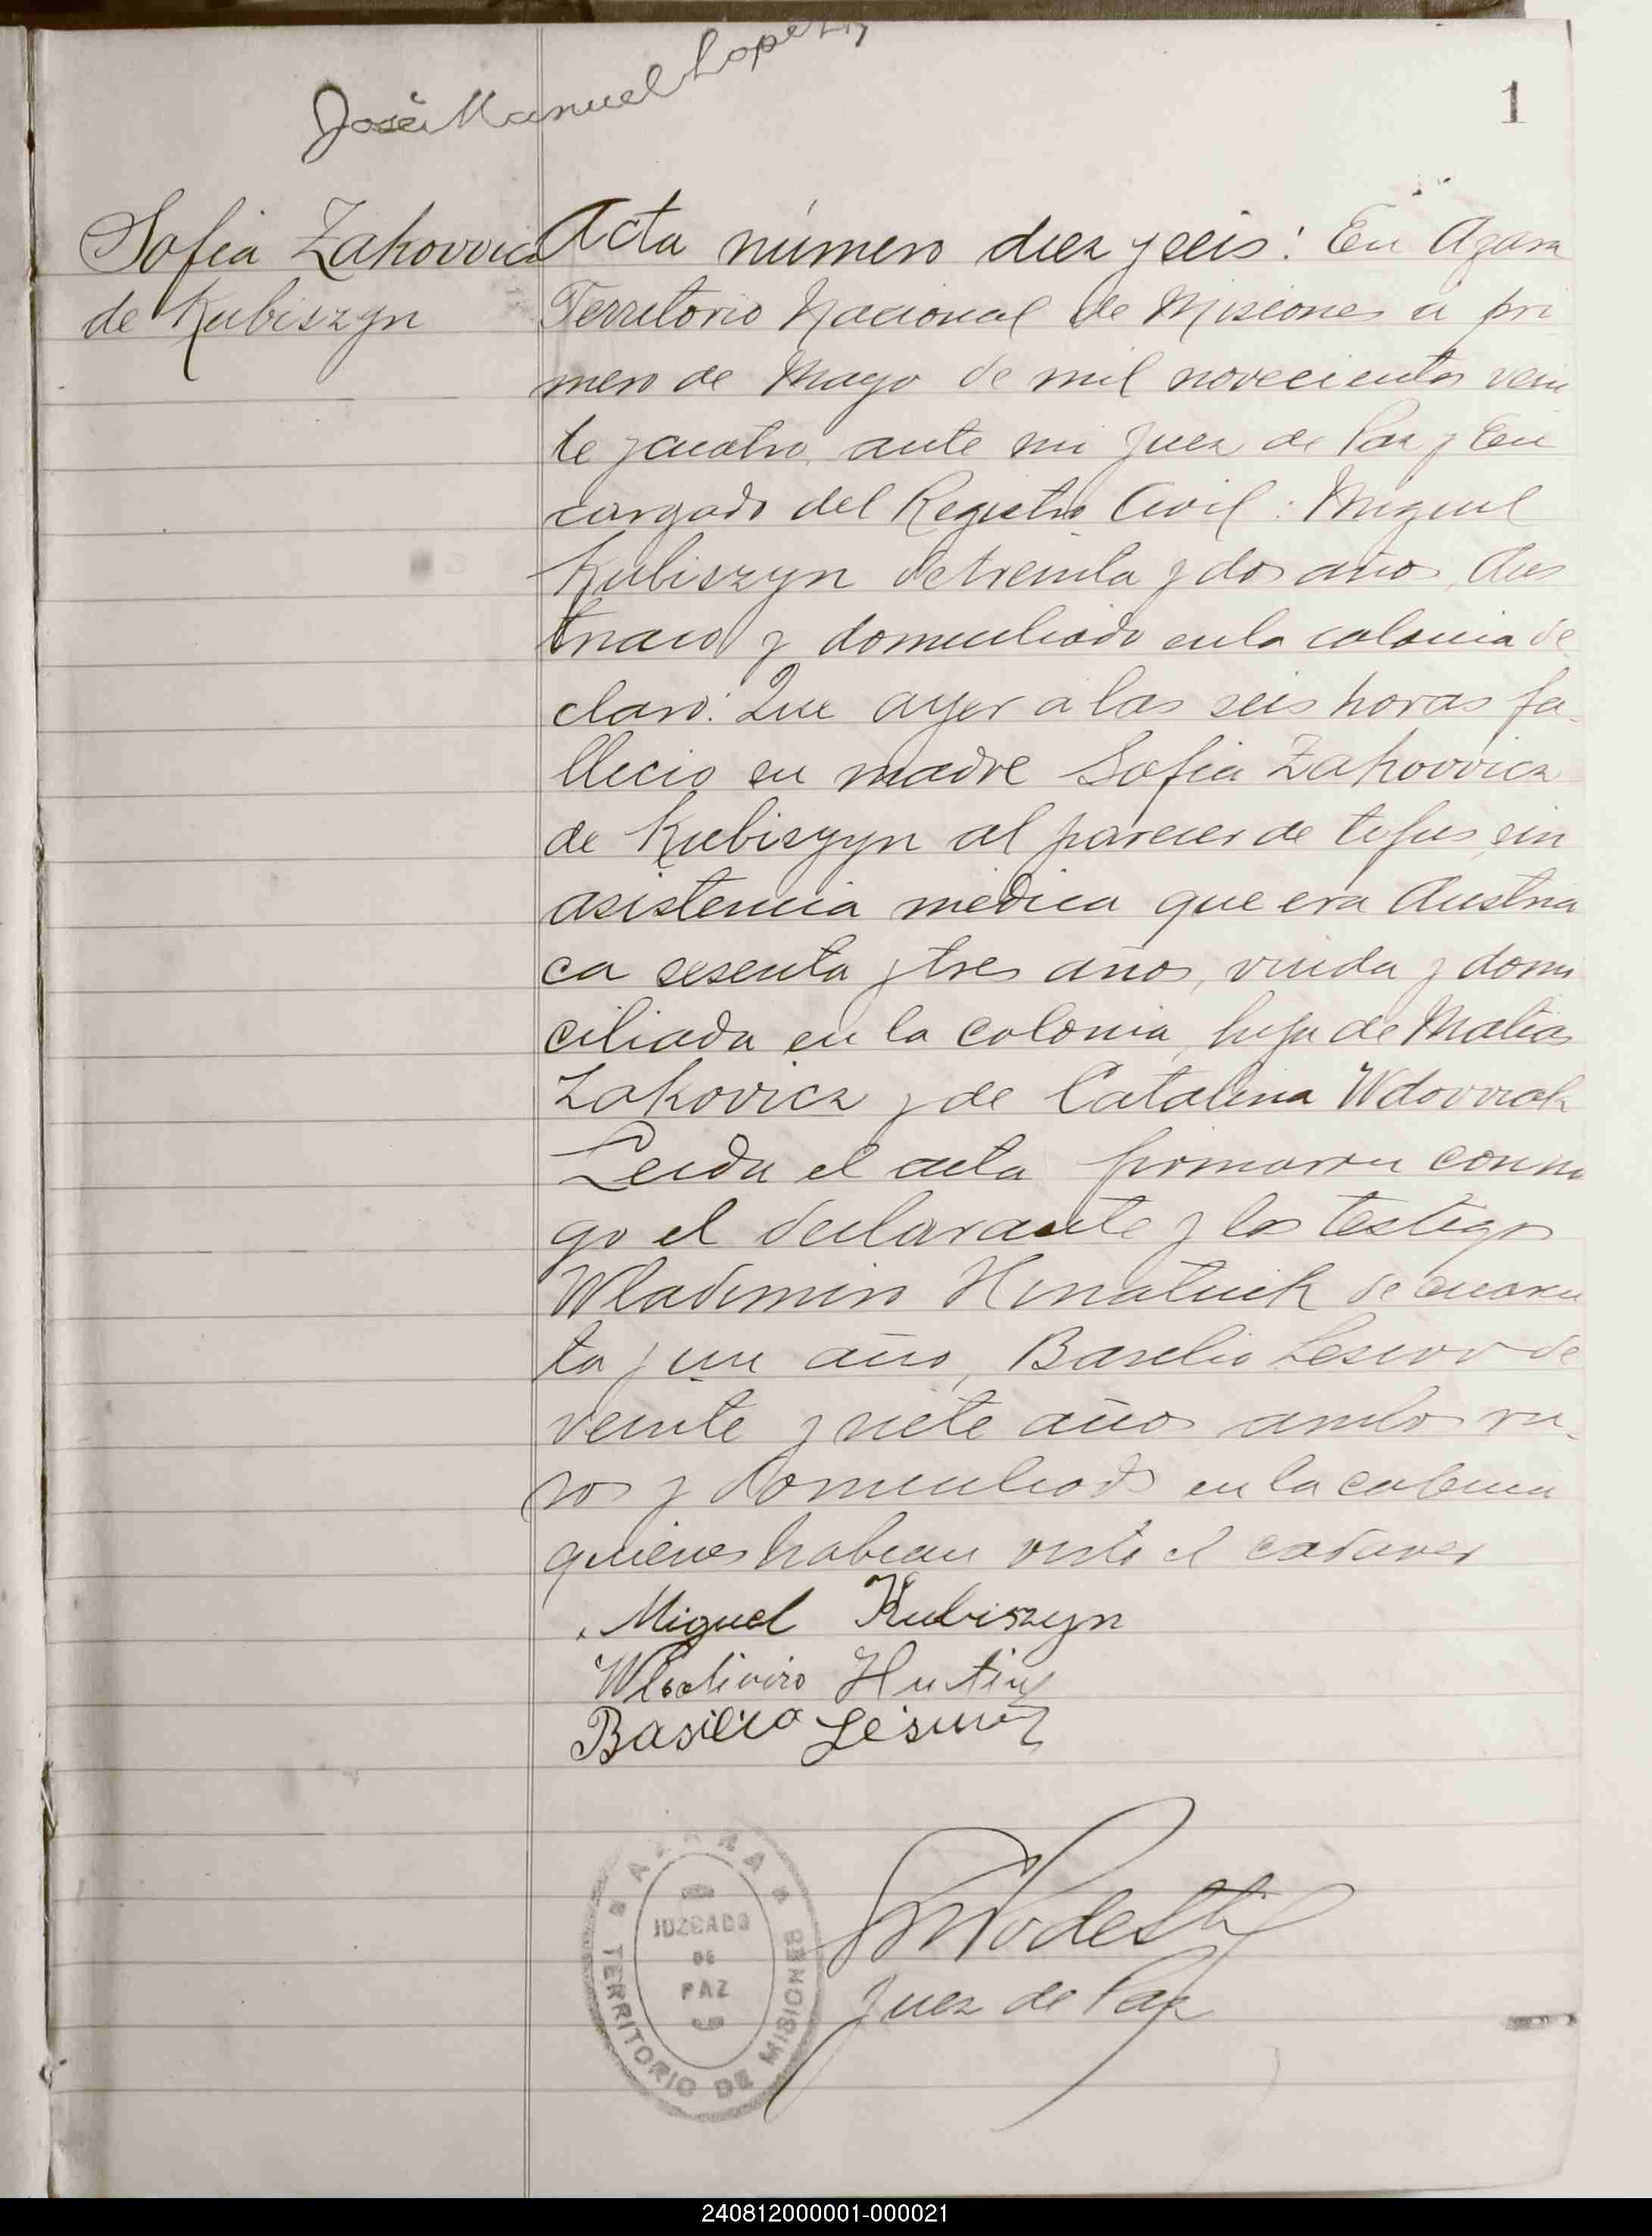 José Manuel Lopez
1
Sofia Zakovvicz
de Kubiszyn
Acta número diez y seis: En Azara
Territorio Nacional de Misiones á pri
mero de Mayo de mil novecientos vein
te y cuatro, ante mi Juez de Paz y En
cargado del Registro Civil: Miguel
Kubiszyn de treinta y dos años, Aus
triaco y domiciliado en la colonia de
claró: Que ayer a las seis horas fa-
lleció su madre Sofia Zakovvicz
de Kubiszyn al parecer de tifus, sin
asistencia médica que era Austria
ca sesenta y tres años, viuda y domi
ciliada en la colonia, hija de Matias
Zakovicz y de Catalina Wdovviak
Leida el acta firmaron conmi
go el declarante y los testigos
Wladimiro Hnatiuk de cuaren
ta y un año, Basilio Lescovv de
veinte y siete años ambos ru-
sos y domiciliados en la colonia
quienes habian visto el cadaver
Miguel Kubiszyn
Wladimiro
Basilio
Podesti
Juez de Paz
AZARA
JUZGADO
DE
PAZ
TERRITORIO DE MISIONES
240812000001-000021